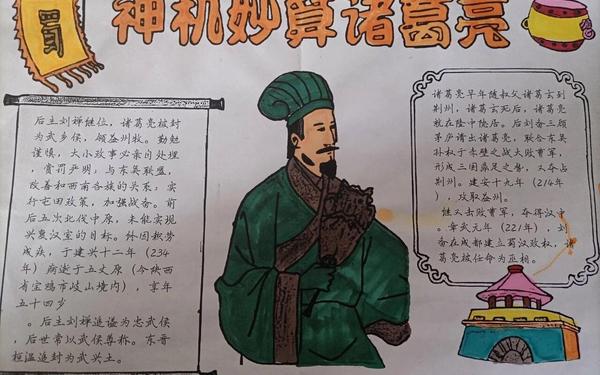 蜀
神机妙算诸葛亮
后主刘禅继位，诸葛亮被封
为武乡侯，领益州牧。勤勉
谨慎，大小政事必亲自处理，
赏罚严明；与东吴联盟，
改善和西南各族的关系；实
行屯田政策，加强战备。前
后五次北伐中原，未能实现
兴复汉室的目标。终因积劳
成疾，于建兴十二年（234
年）病逝于五丈原（今陕西
省宝鸡市岐山境内），享年
五十四岁
。后主刘禅追谥为忠武侯，
后世常以武侯尊称。东晋
桓温追封为武兴王。
诸葛亮早年随叔父诸葛玄到
荆州，诸葛玄死后，诸葛亮
就在隆中隐居。后刘备三顾
茅庐请出诸葛亮，联合东吴
孙权于赤壁之战大败曹军，
形成三国鼎足之势，又夺占
荆州。建安十九年（214年
），攻取益州。
继又击败曹军，夺得汉中
。章武元年（221年），刘
备在成都建立蜀汉政权，诸
葛亮被任命为丞相。